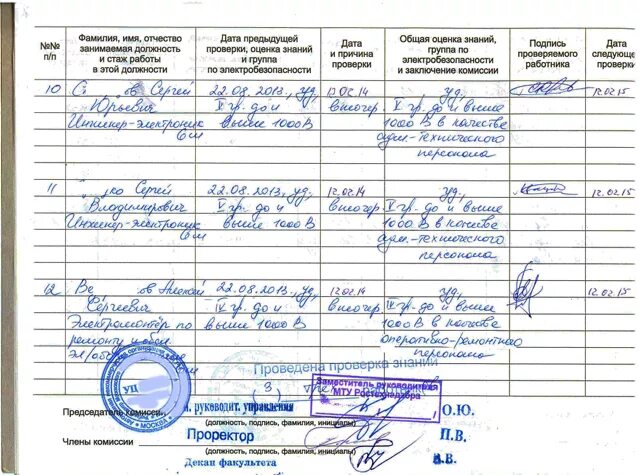 №№ п/п
Фамилия, имя, отчество занимаемая должность и стаж работы в этой должности
Дата предыдущей проверки, оценка знаний и группа по электробезопасности
Дата и причина проверки
Общая оценка знаний, группа по электробезопасности и заключение комиссии
Подпись проверяемого работника
Дата следующе проверки
10 С ов Сергей 22.08.2013, уд, 12.02.14 уд, 12.02.15
Юрьевич V гр. до и внеочер. V гр. до и выше
Инженер-электроник выше 1000 В 1000 В в качестве
6м адм.-технического
персонала
11 ко Сергей 22.08.2013, уд, 12.02.14 уд, 12.02.15
Владимирович V гр. до и внеочер. V гр. до и выше
Инженер-электроник выше 1000 В 1000 В в качестве
6м адм.-технического
персонала
12 Ве ов Алексей 22.08.2013, уд, 12.02.14 уд, 12.02.15
Сергеевич IV гр. до и внеочер. IV гр. до и выше
Электромонтёр по выше 1000 В 1000 В в качестве
ремонту и обсл. оперативно-ремонтного
персонала
Проведена проверка знаний
(3) три
Заместитель руководителя
МТУ Ростехнадзора
УЦ
МОСКВА
Председатель комиссии руководит. управления О.Ю.
(должность, подпись, фамилия, инициалы)
Члены комиссии Проректор П.В.
(должность, подпись, фамилия, инициалы)
Декан факультета В.В.